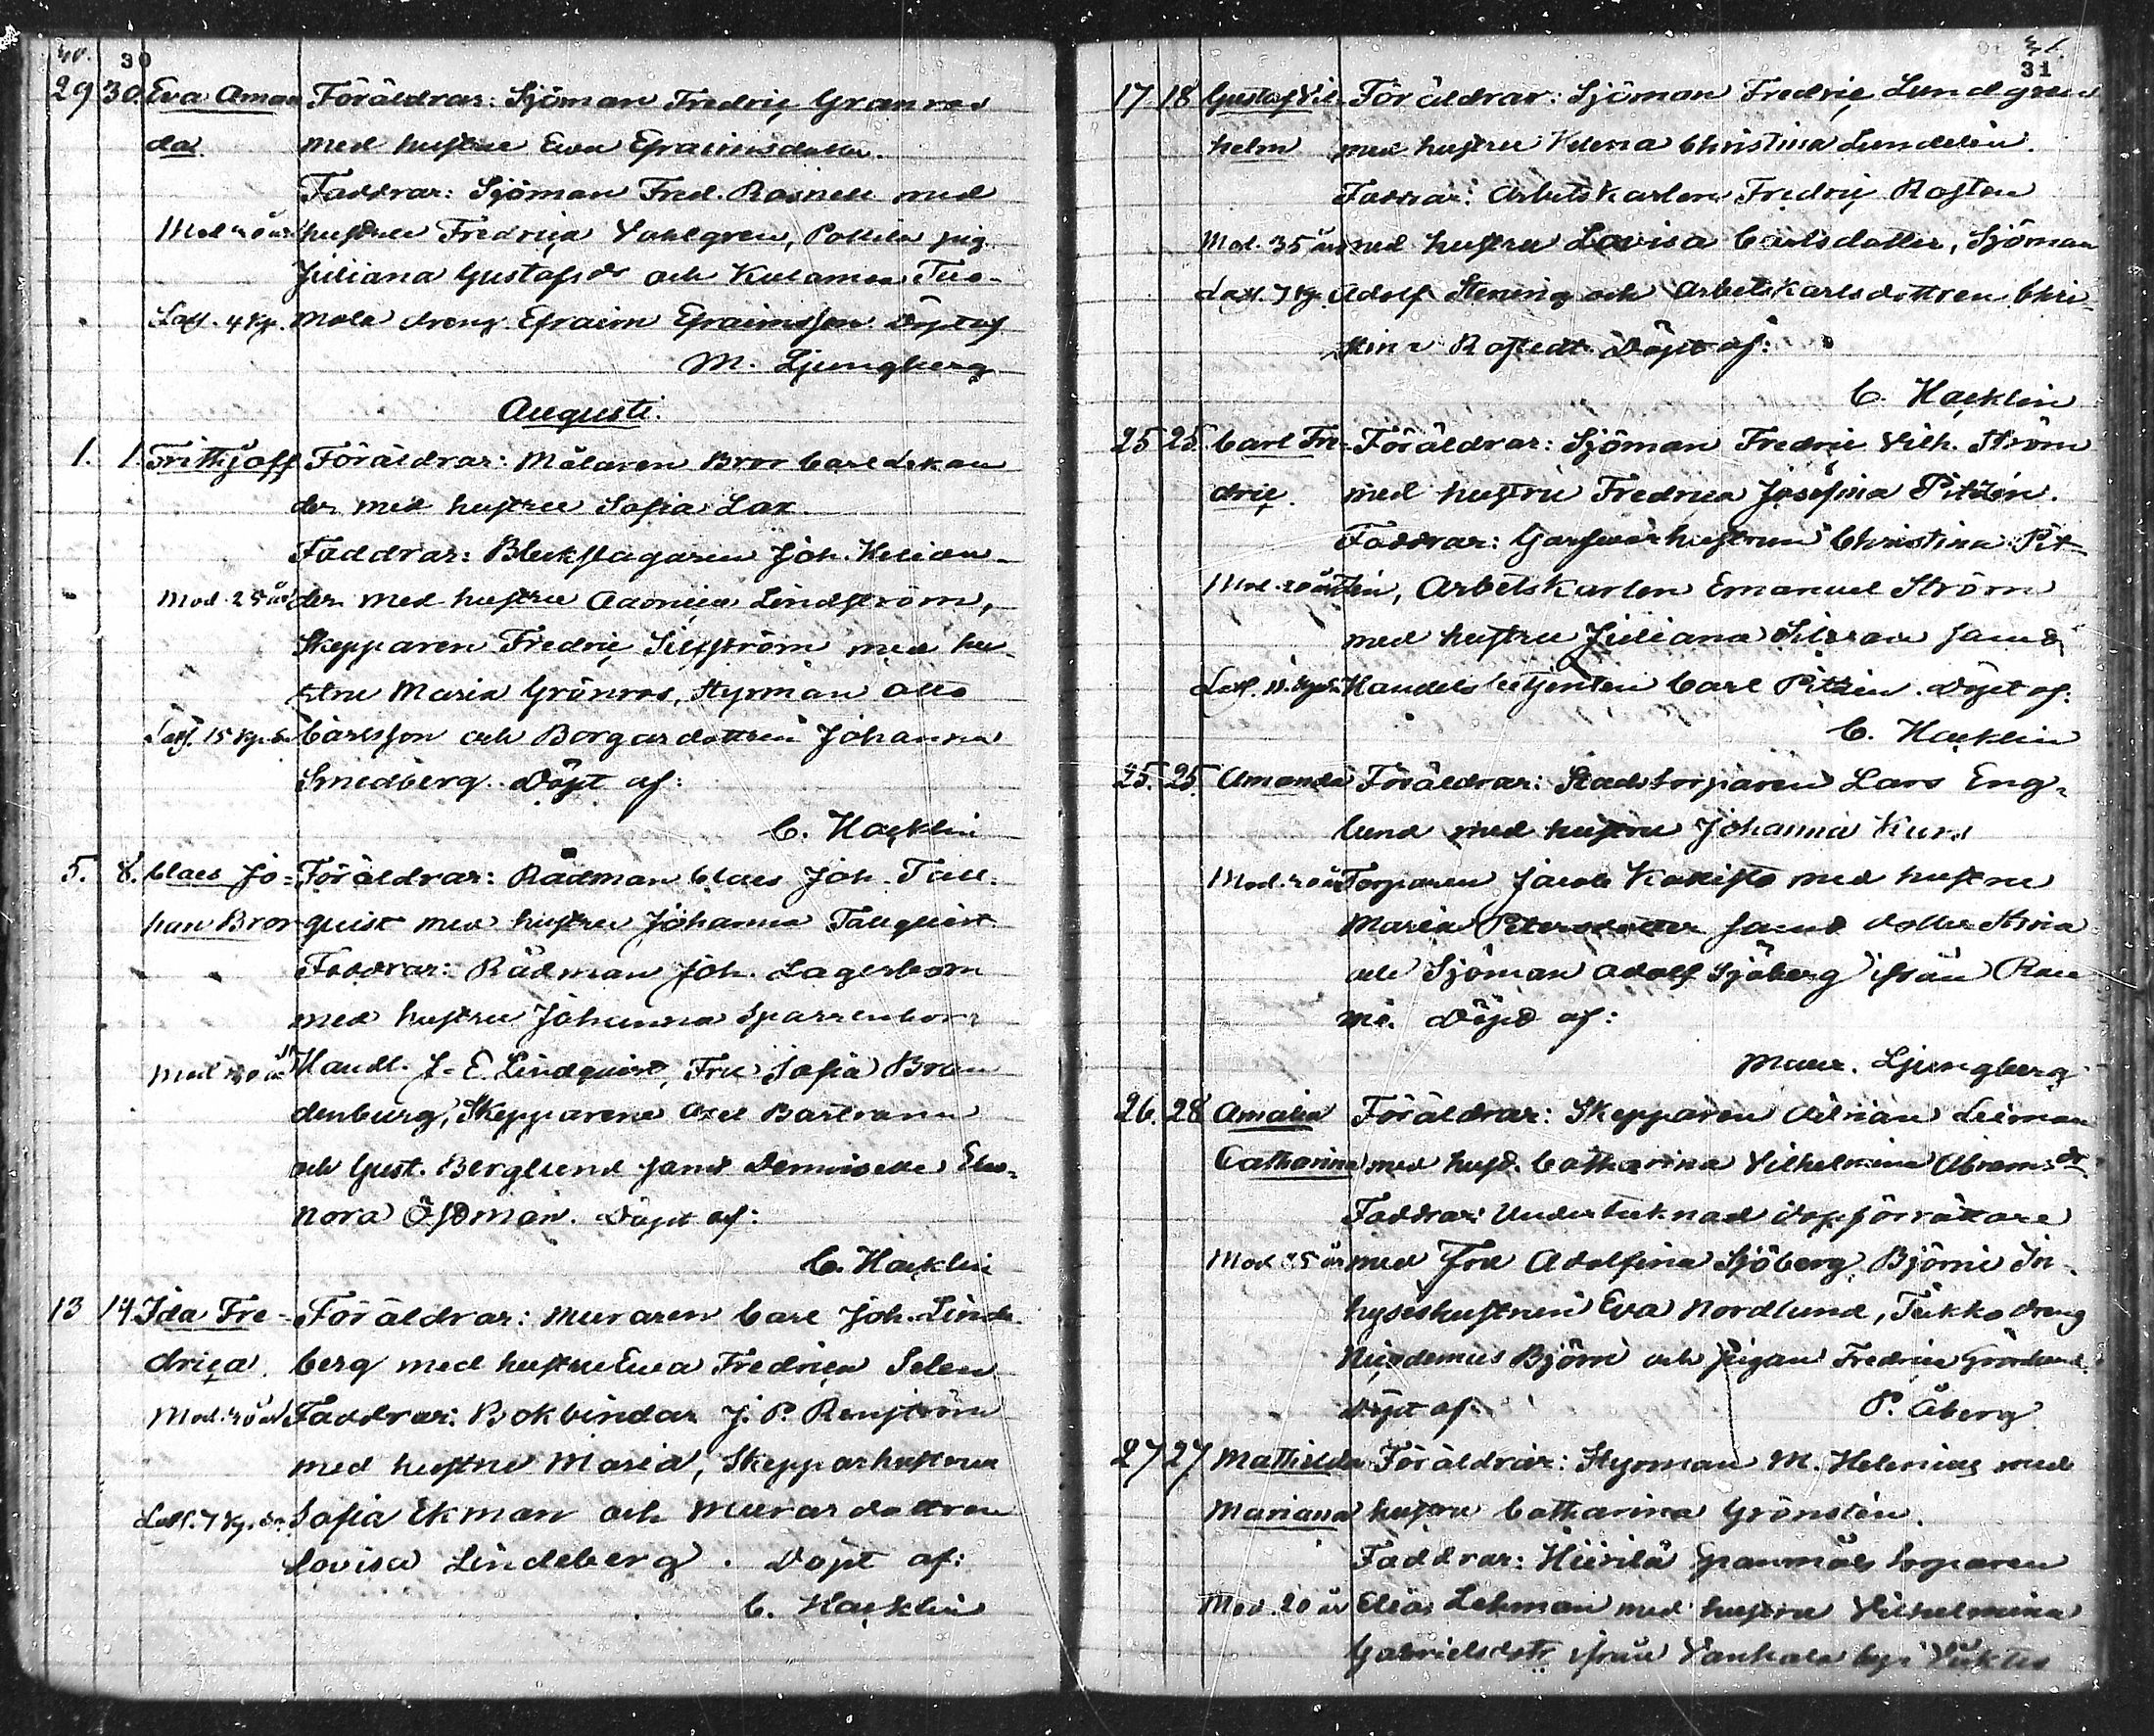 30
29 30. Eva Aman Föräldrar: Sjöman Fredric Granroos
da. med hustru Eva Efraimsdotter.
Faddrar: Sjöman Fred. Rosnell med
Mod. år hustru Fredrica Vahlgren, Pottila pig.
Juliana Gustafsdr och Kulamaa Tuo-
Lösf. 4 Kp. mola dreng Efraim Efraimsson. Döpt af
M. Ljungberg
Augusti.
1. 1. Frithjoff Föräldrar: Målaren Bror Carl Lekan
der med hustru Sofia Lax.
Faddrar: Bleckslagaren Joh. Kelian-
Mod. 25 år der med hustru Lindström,
Skepparen Fredric Silfström med hu-
stru Maria Grönros, Styrman Otto
15 Kp. Carlsson och Borgardottren Johanna
Smedberg. Döpt af:
C. Hacklin
5. 8. Claes Jo- Föräldrar: Rådman Claes Joh. Tall-
han Bror quist med hustru Johanna Tallquist.
Faddrar: Rådman Joh. Lagerbom
med hustru Johanna Sparrenbom
Mod. år Handl. J. E. Lindquist, Fru Sofia Bran
denburg, Skepparene Axel Bastman
och Gust. Berglund samt Demoiselle Eleo-
nora Östman. Döpt af:
C. Hacklin
13 14. Ida Fre- Föräldrar: Muraren Carl Joh. Linde
drica. berg med hustru Eva Fredrica Selen
Mod. år Faddrar: Bokbindar J. P. Renström
med hustru Maria, Skepparhustrun
7 Kp. Sofia Ekman och Murardottren
Lovisa Lindeberg. Döpt af:
C. Hacklin
31
31
17 18 Gustaf Vil- Föräldrar: Sjöman Fredric Lundgren
helm med hustru Helena Christina Lundelin.
Faddrar: Arbetskarlen Fredric Rosten
Mod. 35 år med hustru Lovisa Carlsdotter, Sjöman
7 Kp. Adolf Stening och Arbetskarlsdottren Chri-
stina Rostedt. Döpt af:
C. Hacklin
25 25. Carl Fre- Föräldrar: Sjöman Fredric Vilh. Ström
dric. med hustru Fredrica Josefina Pitzén.
Faddrar: Garfvarhustrun Christina Pit-
Mod. år zén, Arbetskarlen Emanuel Ström
med hustru Juliana samt
Handelsbetjenten Carl Pitzén. Döpt af:
C. Hacklin
25. 25. Amanda Föräldrar: Stadstorparen Lars Eng-
lund med hustru Johanna Kurs
Mod. år Torparen Jacob Kokisto med hustru
Maria Petersdotter samt dotter Stina
och Sjöman Adolf Sjöberg ifrån Rau
mo. Döpt af:
Maur. Ljungberg
26. 28 Amalia Föräldrar: Skepparen Adrian Leiman
Catharina med hust. Catharina Vilhelmina Abramsdr.
Faddrar: Undertecknad dopförrättare
Mod. år med Fru Adolfina Sjöberg, Björni In-
hyseshustrun Eva Nordlund, Tükko dreng
Nicodemus Björn och Pigan Fredrica Grönlund.
Döpt af: P. Åberg
27 27 Mathilda Föräldrar: Styrman M. Helenius med
Mariana hustru Catharina Grönstén.
Faddrar: Hiirilä torparen
Mod. 20 år Elias Lehman med hustru Vilhelmina
Gabrielsdtr ifrån Vanhala by i